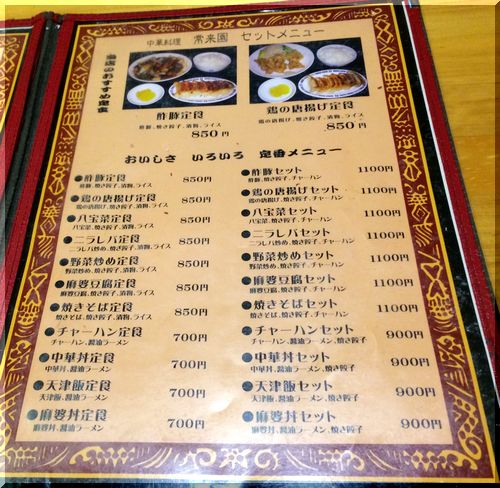 中華料理 常来園 セットメニュー
当店のおすすめ定食
酢豚定食
酢豚、焼き餃子、漬物、ライス
850円
鶏の唐揚げ定食
鶏の唐揚げ、焼き餃子、漬物、ライス
850円
おいしさ いろいろ 定番メニュー
酢豚定食 850円
酢豚、焼き餃子、漬物、ライス
鶏の唐揚げ定食 850円
鶏の唐揚げ、焼き餃子、漬物、ライス
八宝菜定食 850円
八宝菜、焼き餃子、漬物、ライス
ニラレバ定食 850円
ニラレバ炒め、焼き餃子、漬物、ライス
野菜炒め定食 850円
野菜炒め、焼き餃子、漬物、ライス
麻婆豆腐定食 850円
麻婆豆腐、焼き餃子、漬物、ライス
焼きそば定食 850円
焼きそば、焼き餃子、漬物、ライス
チャーハン定食 700円
チャーハン、醤油ラーメン
中華丼定食 700円
中華丼、醤油ラーメン
天津飯定食 700円
天津飯、醤油ラーメン
麻婆丼定食 700円
麻婆丼、醤油ラーメン
酢豚セット 1100円
酢豚、焼き餃子、チャーハン
鶏の唐揚げセット 1100円
鶏の唐揚げ、焼き餃子、チャーハン
八宝菜セット 1100円
八宝菜、焼き餃子、チャーハン
ニラレバセット 1100円
ニラレバ炒め、焼き餃子、チャーハン
野菜炒めセット 1100円
野菜炒め、焼き餃子、チャーハン
麻婆豆腐セット 1100円
麻婆豆腐、焼き餃子、チャーハン
焼きそばセット 1100円
焼きそば、焼き餃子、チャーハン
チャーハンセット 900円
チャーハン、醤油ラーメン、焼き餃子
中華丼セット 900円
中華丼、醤油ラーメン、焼き餃子
天津飯セット 900円
天津飯、醤油ラーメン、焼き餃子
麻婆丼セット 900円
麻婆丼、醤油ラーメン、焼き餃子